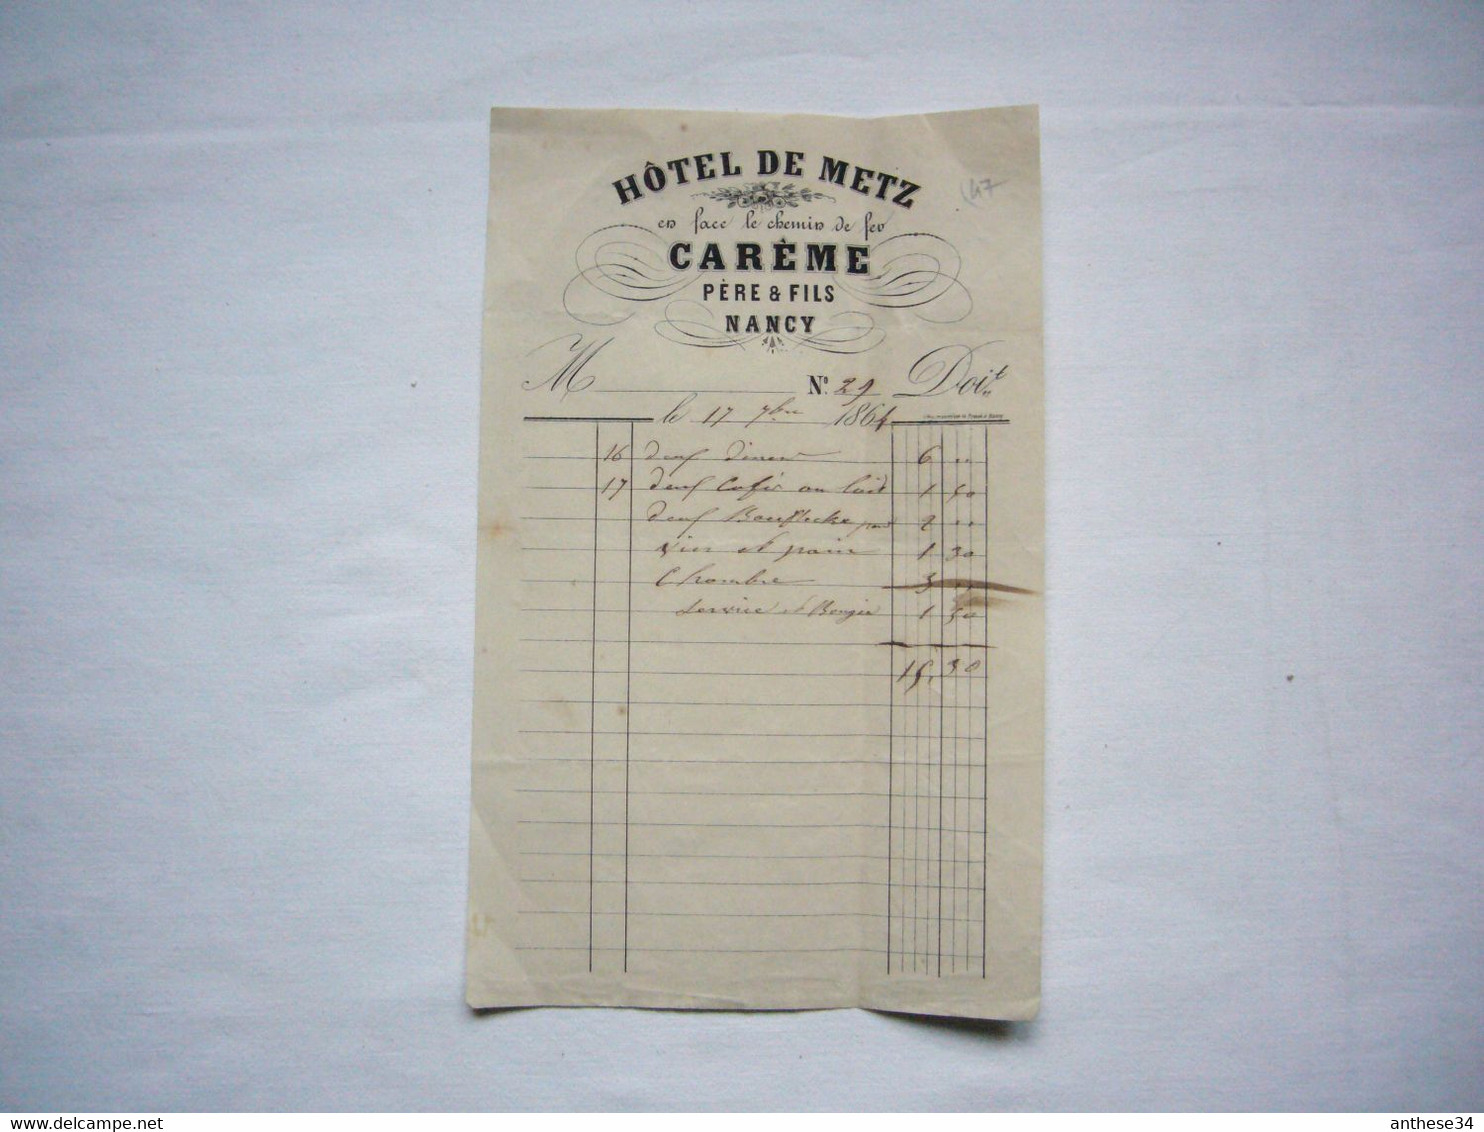 HÔTEL DE METZ
147
en face le chemin de fer
CARÊME
PÈRE & FILS
NANCY
M N° 29 Doit
le 17 7bre 1864
16 deux diners 6 "
17 deux Cafés au lait 1 50
deux Beefteks 2 "
vin et pain 1 30
Chambre 3 "
service et Bougie 1 50
15,30
delcampe.net
anthese34